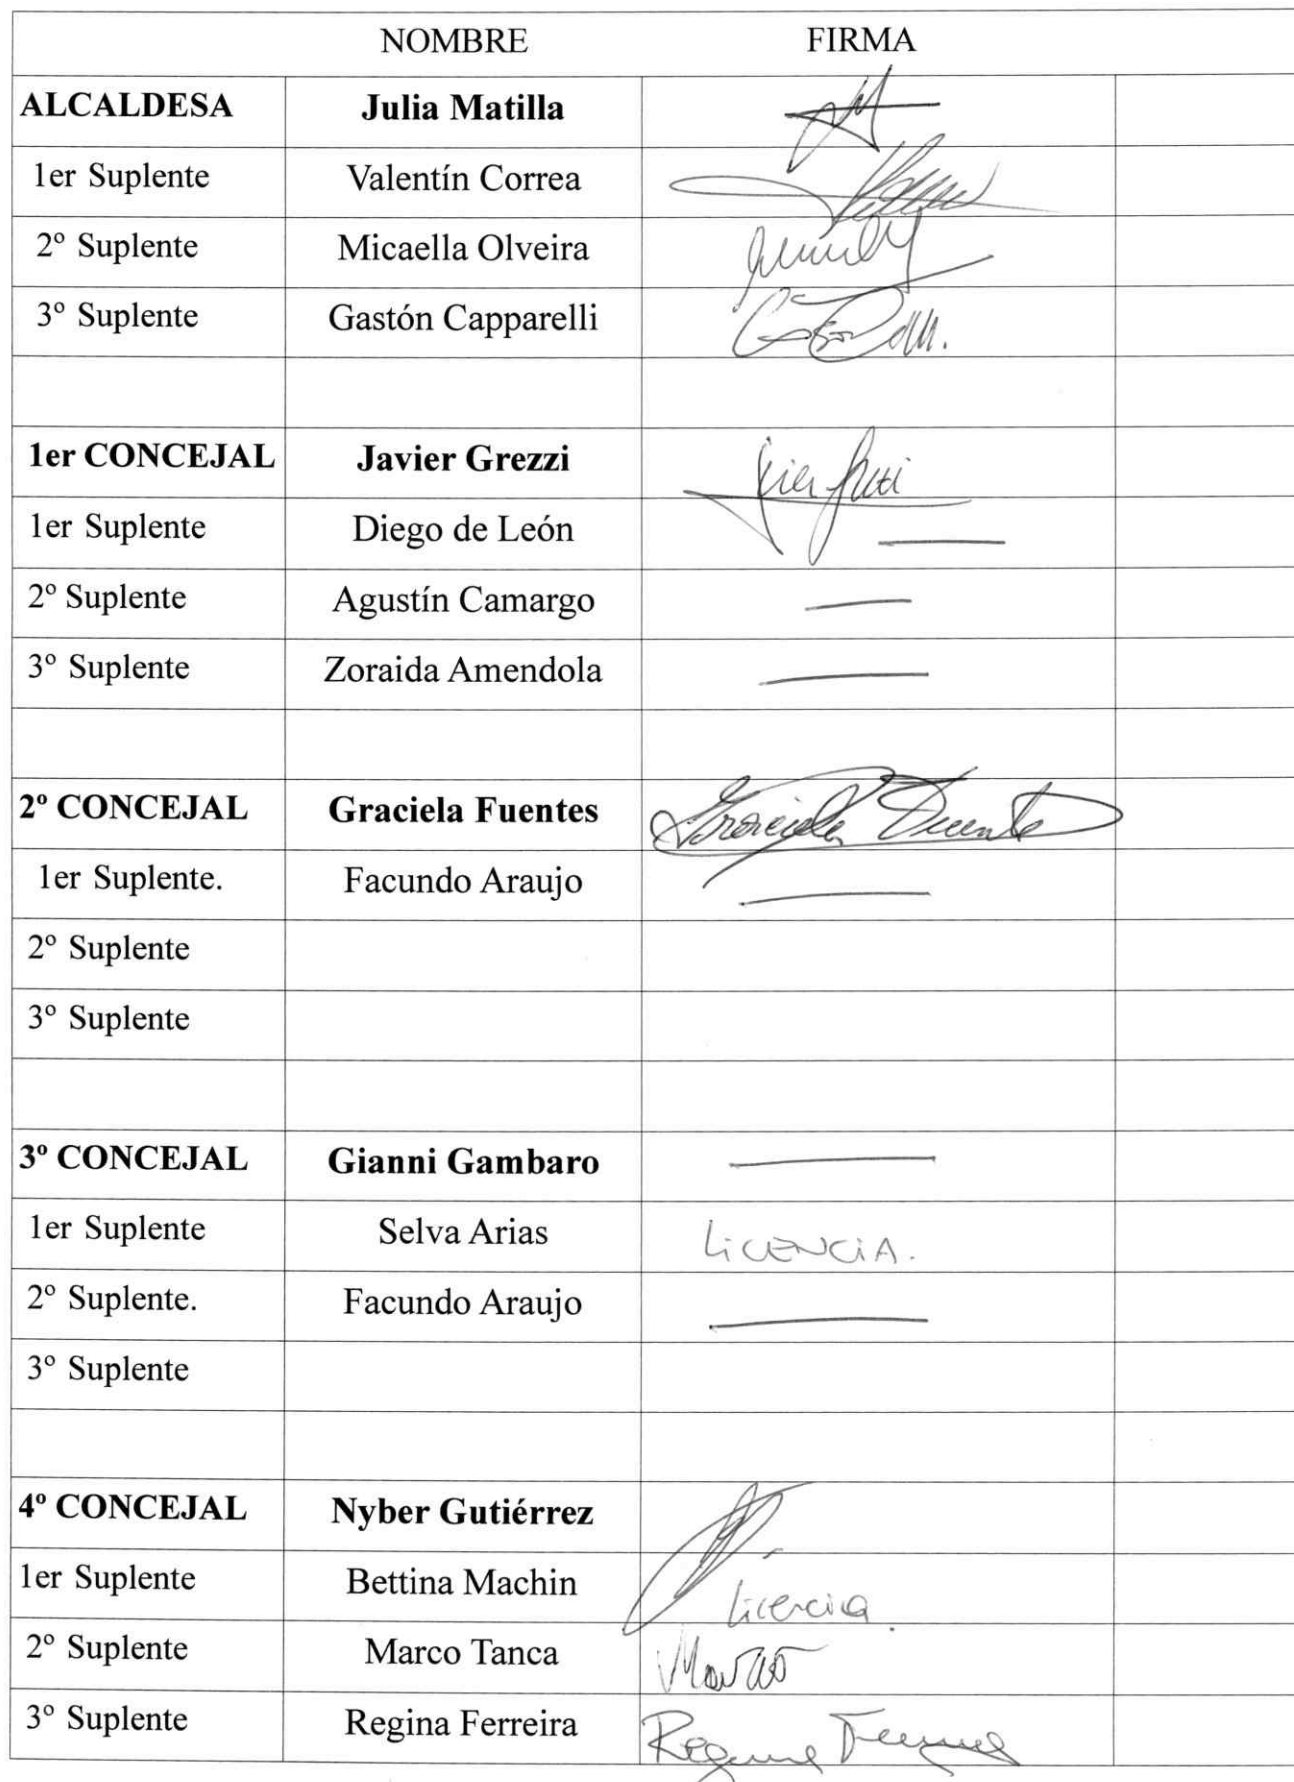 NOMBRE FIRMA
ALCALDESA Julia Matilla
1er Suplente Valentín Correa
2º Suplente Micaella Olveira
3º Suplente Gastón Capparelli
1er CONCEJAL Javier Grezzi
1er Suplente Diego de León
2º Suplente Agustín Camargo
3º Suplente Zoraida Amendola
2º CONCEJAL Graciela Fuentes Graciela Fuentes
1er Suplente. Facundo Araujo
2º Suplente
3º Suplente
3º CONCEJAL Gianni Gambaro
1er Suplente Selva Arias LiCENCiA.
2º Suplente. Facundo Araujo
3º Suplente
4º CONCEJAL Nyber Gutiérrez
1er Suplente Bettina Machin licencia.
2º Suplente Marco Tanca Marco
3º Suplente Regina Ferreira Regina Ferreira